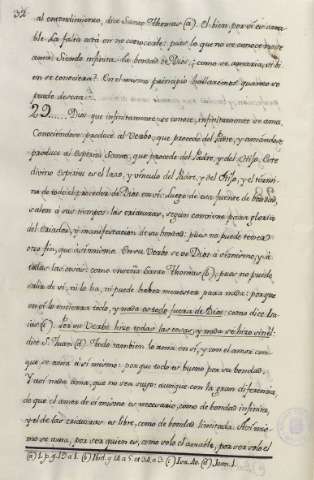 32
al entendimiento, dice Santo Thomas (a). El bien por sí es ama-
ble. La falta está en no conocerle: pues lo que no se conoce no se
ama. Siendo infinita la bondad de Dios, como se amaría, si bi-
en se considerara? En el mismo principio hallaremos quanto se
puede desear.
29..... Dios que infinitamente se conoce, infinitamente se ama.
Conociendose produce al Verbo, que procede del Padre, y amandose
produce al Espiritu Santo, que procede del Padre, y del Hijo. Este
divino Espiritu es el lazo, y vinculo del Padre, y del Hijo, y el termi-
no de todo el proceder de Dios en sí: luego de esa fuente de bondad,
salen a sus tiempos las criaturas, segun conviene para gloria
del Criador, y manifestacion de su bondad: pues no puede tener a
otro fin, que a sí mismo. En su Verbo se ve Dios a sí mismo, y a
todas las cosas: como enseña Santo Thomas (b), pues no puede
salir de sí, ni lo ha, ni puede haber menester para nada: porque
en sí lo encierra todo, y nada es todo fuera de Dios: como dice Isa-
ias (c). Por su Verbo hizo todas las cosas, y nada se hizo sin el:
dice S. Juan (d). Todo tambien lo ama en sí, y con el amor con
que se ama a sí mismo: porque todo es bueno por su bondad.
Y así nada ama, que no sea suyo: aunque con la gran diferencia,
de que el amor de sí mismo es necesario, como de bondad infinita,
y el de las criaturas es libre, como de bondad limitada. A sí mis-
mo se ama, por ser quien es, como solo el amable, por ser solo el
(a) 1. p. q. 13 a 1. (b) Ibid. q. 14 a 5 et 34 a 3 (c) Isa. 40. (d) Joan. 1.